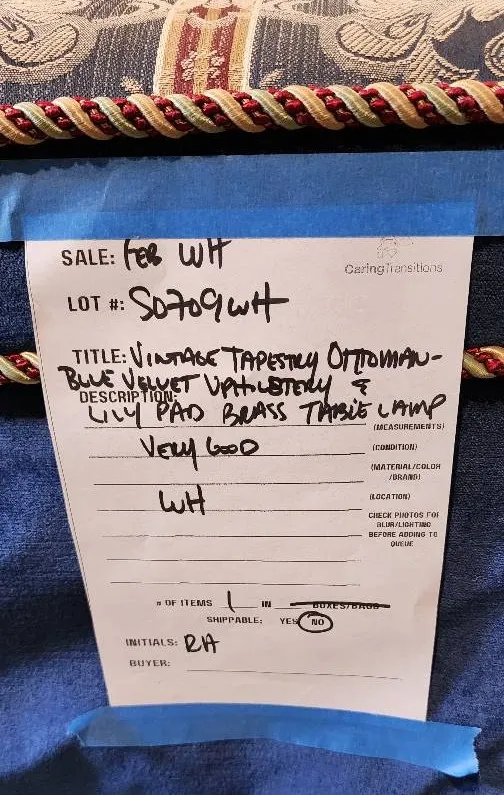 SALE: FEB WH
CaringTransitions
LOT #: S0709WH
TITLE: VINTAGE TAPESTRY OTTOMAN-
BLUE VELVET UPHLSTERY &
DESCRIPTION:
LILY PAD BRASS TABLE LAMP
(MEASUREMENTS)
VERY GOOD
(CONDITION)
(MATERIAL/COLOR
/BRAND)
WH
(LOCATION)
CHECK PHOTOS FOR
BLUR/LIGHTING
BEFORE ADDING TO
QUEUE
# OF ITEMS 1 IN BOXES/BAGS
SHIPPABLE: YES NO
INITIALS: RH
BUYER: